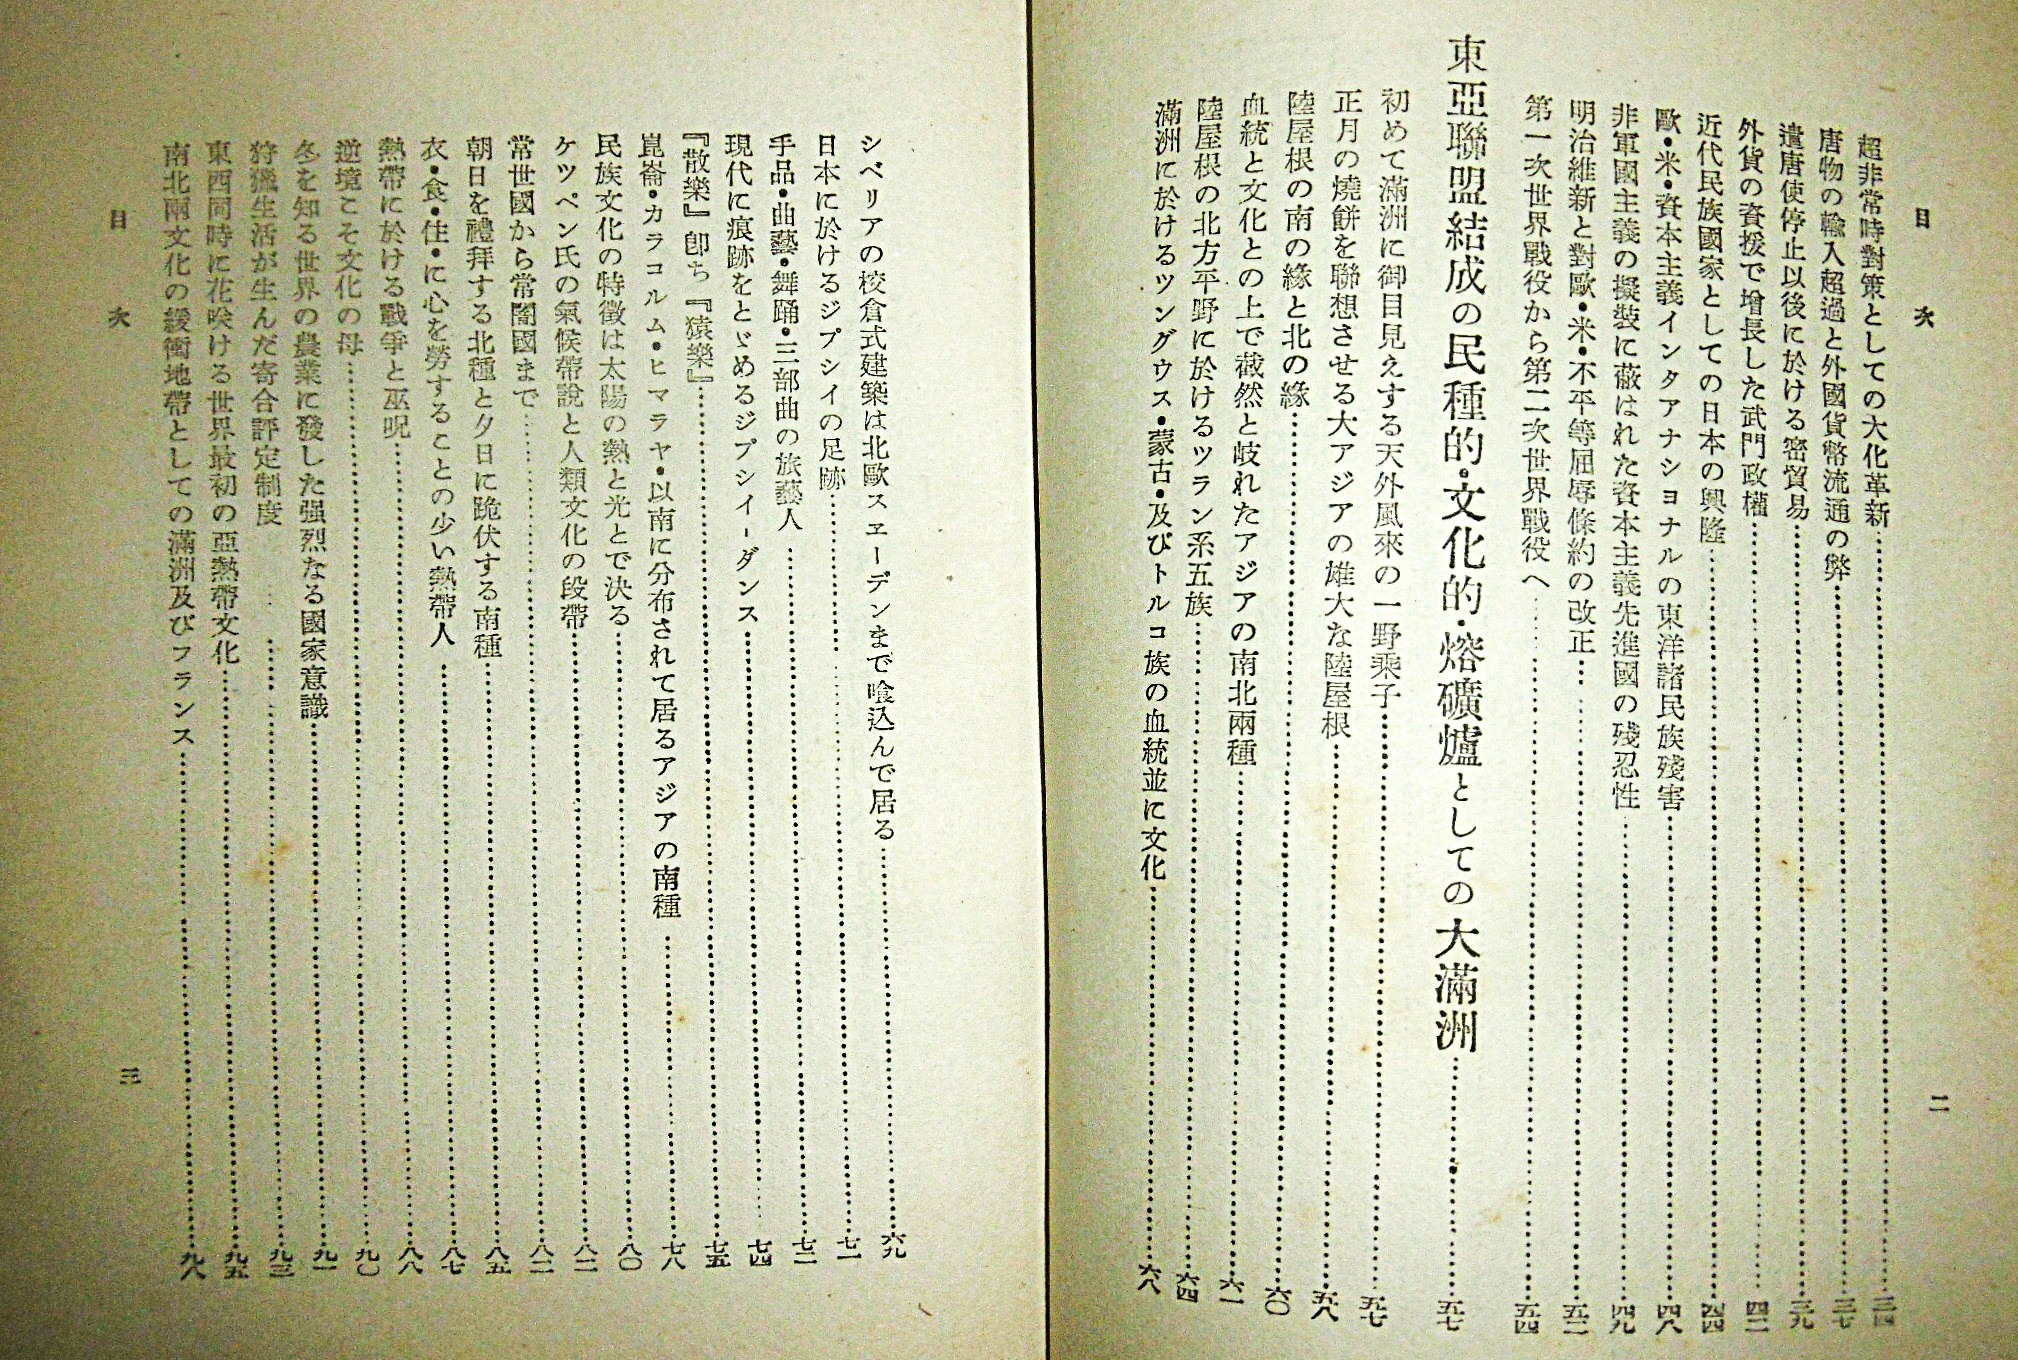 目次
二
超非常時對策としての大化革新……三四
唐物の輸入超過と外國貨幣流通の弊……三七
遣唐使停止以後に於ける密貿易……三九
外貨の資援で增長した武門政權……四二
近代民族國家としての日本の興隆……四四
歐・米・資本主義インタアナシヨナルの東洋諸民族殘害……四八
非軍國主義の擬裝に蔽はれた資本主義先進國の殘忍性……四九
明治維新と對歐・米・不平等屈辱條約の改正……五二
第一次世界戰役から第二次世界戰役へ……五四
東亞聯盟結成の民種的・文化的・熔礦爐としての大滿洲……五七
初めて滿洲に御目見えする天外風來の一野乘子……五七
正月の燒餅を聯想させる大アジアの雄大な陸屋根……五八
陸屋根の南の緣と北の緣……六〇
血統と文化との上で截然と岐れたアジアの南北兩種……六一
陸屋根の北方平野に於けるツラン系五族……六四
滿洲に於けるツングウス・蒙古・及びトルコ族の血統並に文化……六八
シベリアの校倉式建築は北歐スヱーデンまで喰込んで居る……六九
日本に於けるジプシイの足跡……七一
手品・曲藝・舞踊・三部曲の旅藝人……七二
現代に痕跡をとゞめるジプシイ・ダンス……七四
『散樂』卽ち『猿樂』……七五
崑崙・カラコルム・ヒマラヤ・以南に分布されて居るアジアの南種……七八
民族文化の特徵は太陽の熱と光とで決る……八〇
ケツペン氏の氣候帶說と人類文化の段帶……八二
常世國から常闇國まで……八二
朝日を禮拜する北種と夕日に跪伏する南種……八五
衣・食・住・に心を勞することの少い熱帶人……八七
熱帶に於ける戰爭と巫呪……八八
逆境こそ文化の母……九〇
冬を知る世界の農業に發した强烈なる國家意識……九一
狩獵生活が生んだ寄合評定制度……九三
東西同時に花咲ける世界最初の亞熱帶文化……九五
南北兩文化の緩衝地帶としての滿洲及びフランス……九八
目次
三